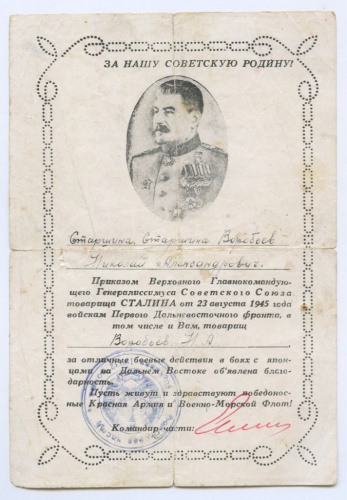 ЗА НАШУ СОВЕТСКУЮ РОДИНУ!
Старшина, Старшина Воробьев
Николай Александрович.
Приказом Верховного Главнокомандую-
щего Генералиссимуса Советского Союза
товарища СТАЛИНА от 23 августа 1945 года
войскам Первого Дальневосточного фронта, в
том числе и Вам, товарищ
Воробьев Н А
за отличные боевые действия в боях с япон-
цами на Дальнем Востоке об'явлена благо-
дарность.
Пусть живут и здравствуют победонос-
ные Красная Армия и Военно-Морской Флот!
Командир части: